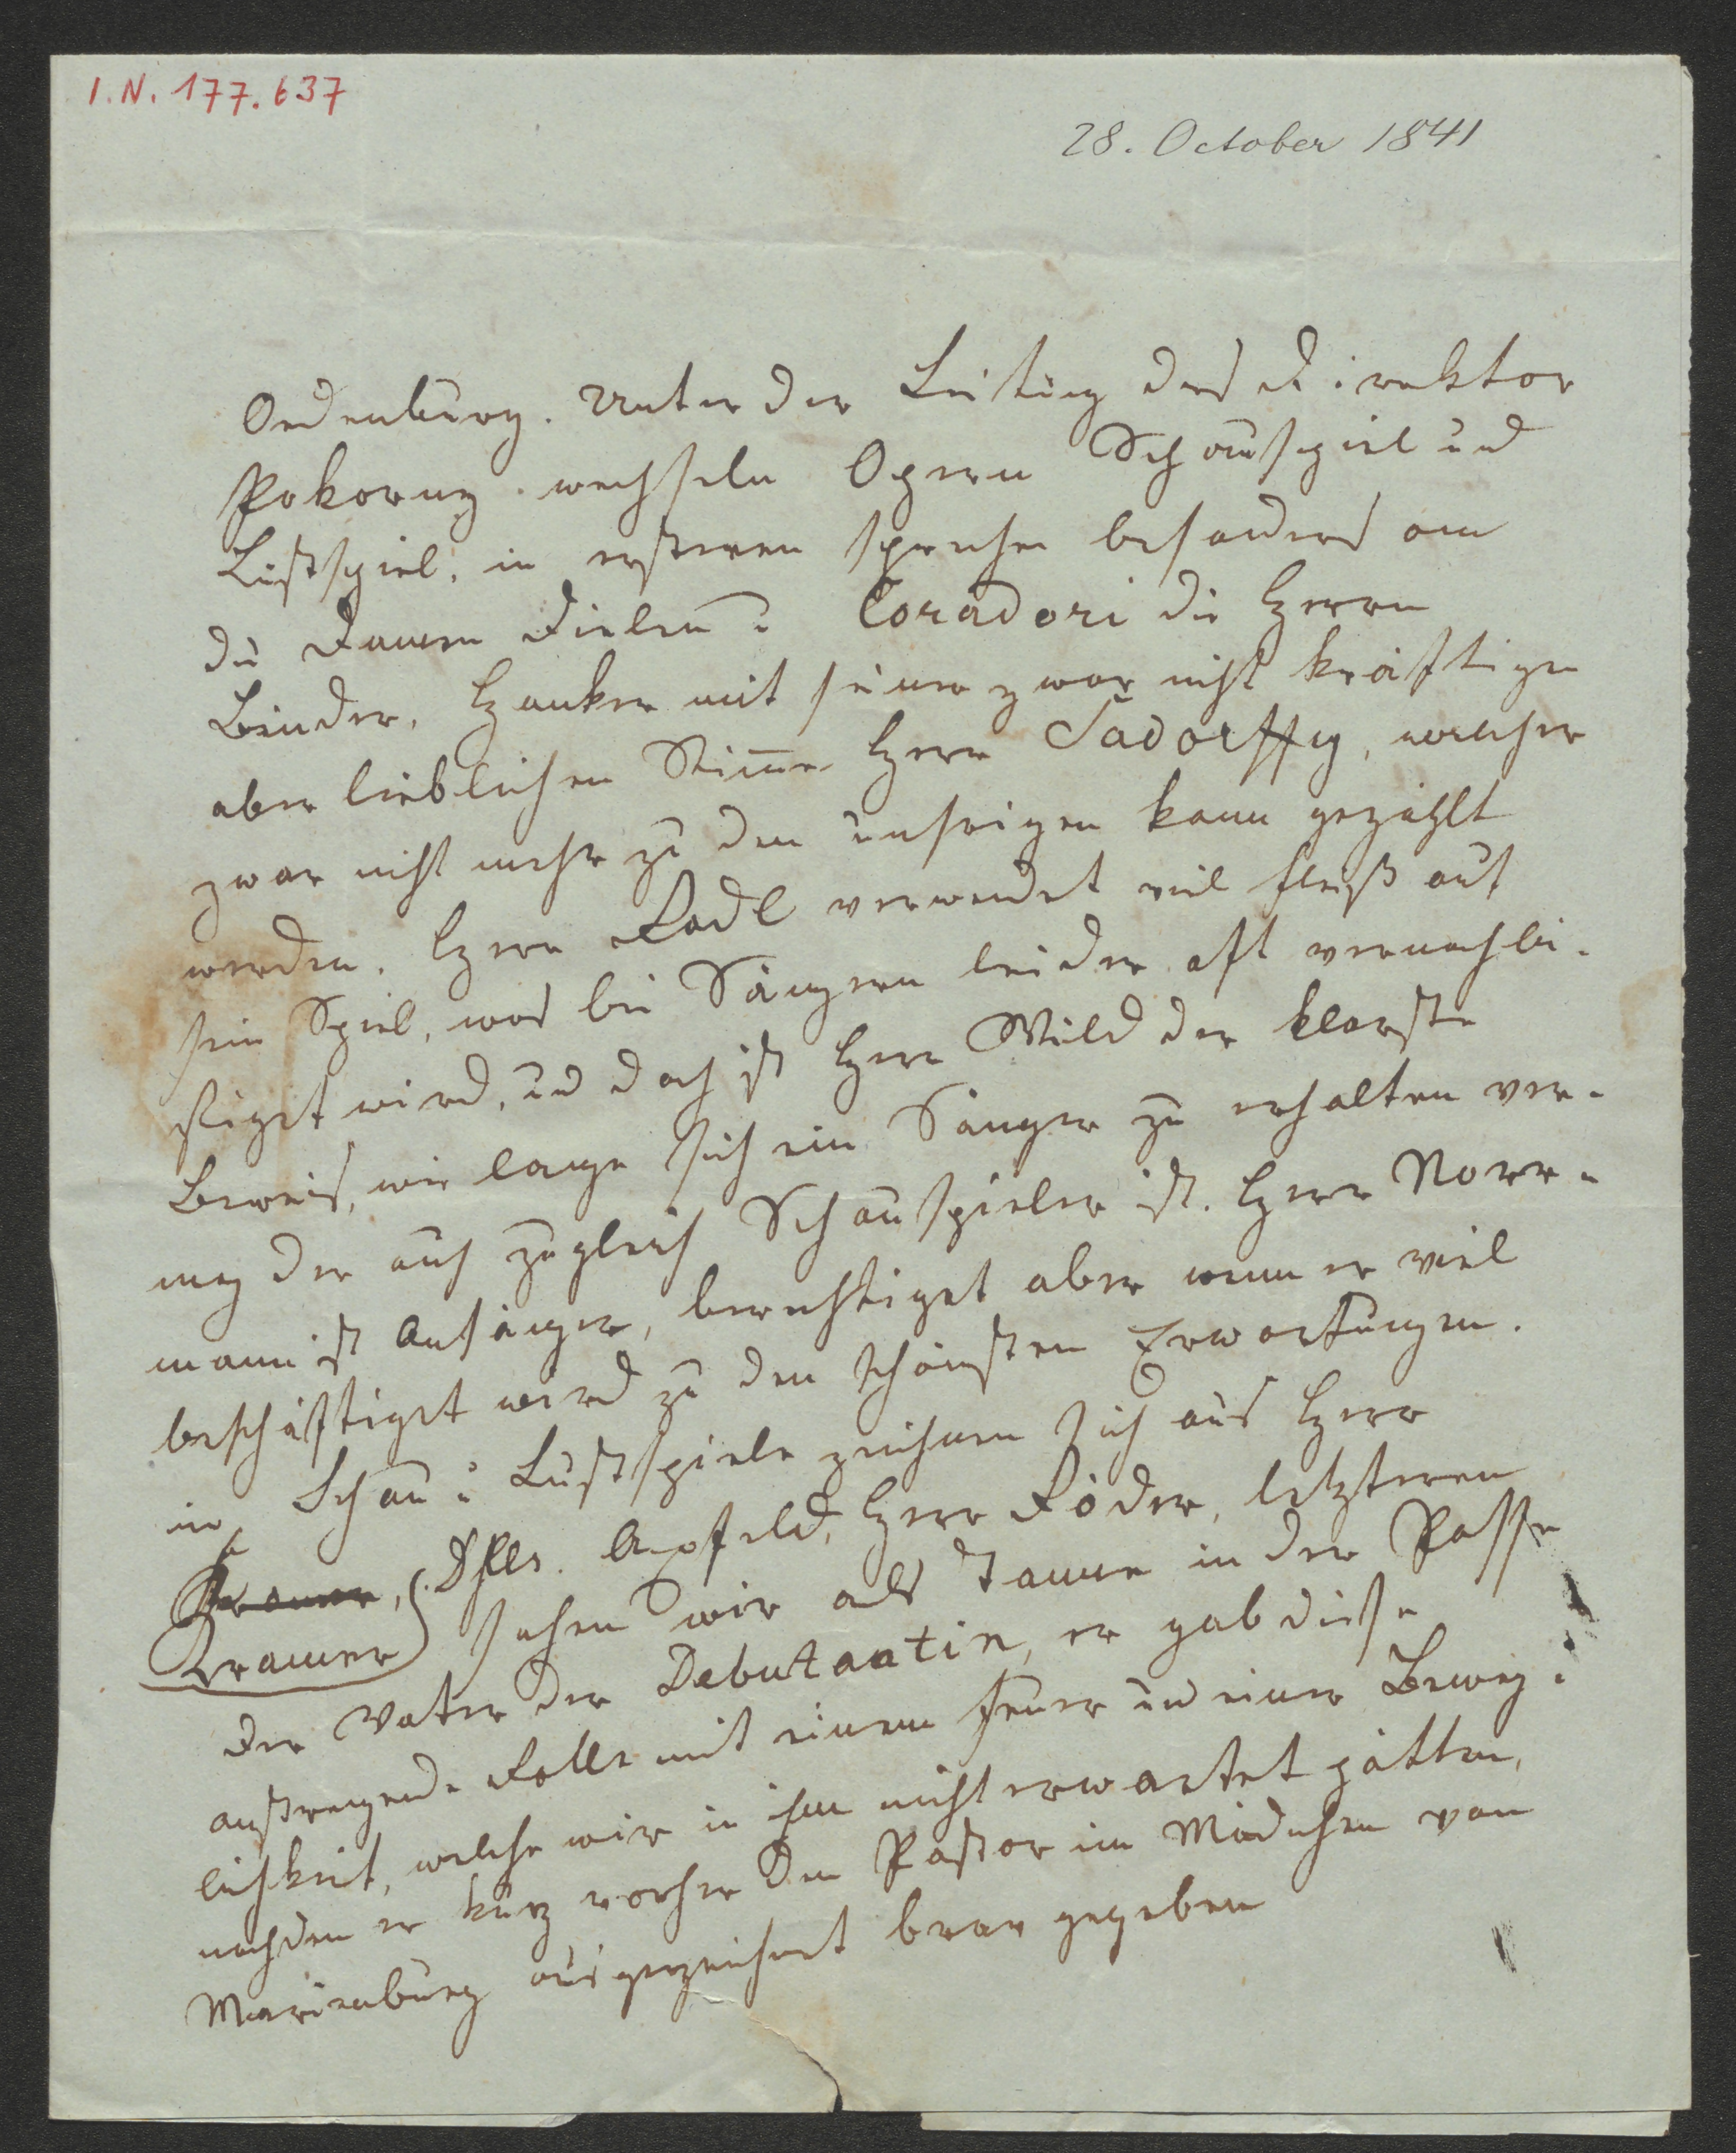 I.N. 177.637
28. October 1841
Oedenburg. Unter der Leitung des Direktor
Pokorny wechseln Opern Schauspiel und
Lustspiel, in ersteren sprechen besonders an
die Damen Dielen u Coradori die Herrn
Binder, Hanker mit seiner zwar nicht kräftigen
aber lieblichen Stimme Herr Tadorffy, welcher
zwar nicht mehr zu den unsrigen kann gezählt
werden. Herr Radl verwendet viel Fleiß auf
sein Spiel, was bei Sängern leider oft vernachlä-
ßiget wird, und doch ist Herr Wild der klarste
Beweis, wie lange sich ein Sänger zu erhalten ver-
mag der auch zugleich Schauspieler ist. Herr Norr-
mann ist Anfänger, berechtiget aber wenn er viel
beschäftiget wird zu den schönsten Erwartungen.
im Schau u Lustspiele zeichnen sich aus Herr
Kramer, Dlle. Apfeld, Herr Röder, letzteren
Kramer sahen wir als Tanne in der Posse
Der Vater der Debutantin, er gab diese
anstrengende Rolle mit einem Feuer und einer Beweg-
lichkeit, welche wir in ihm nicht erwartet hätten,
nachdem er kurz vorher den Pastor im Mädchen von
Marienburg ausgezeichnet brav gegeben